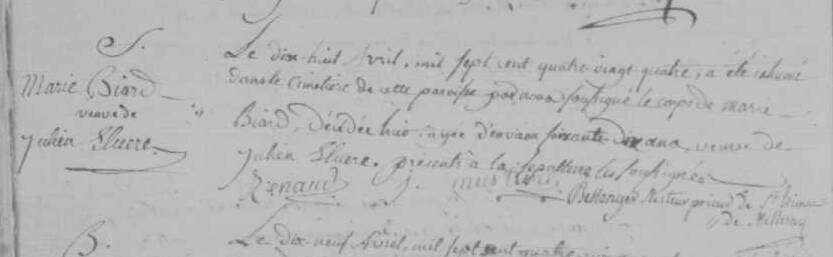 S.
Marie Biard
veuve de
Julien Lluere
Le dix-huit Avril, mil sept cent quatre vingt quatre, a été inhumé
dans le Cimetière de cette paroisse par nous soussigné le corps de marie
Biard, décédée hier, agée d'environ soixante dix ans, veuve de
Julien Lluere. présents à la sepulture les soussignés
Renaud J.
Bellanger Recteur prieur de St
de
B.
Le dix-neuf Avril, mil sept cent quatre